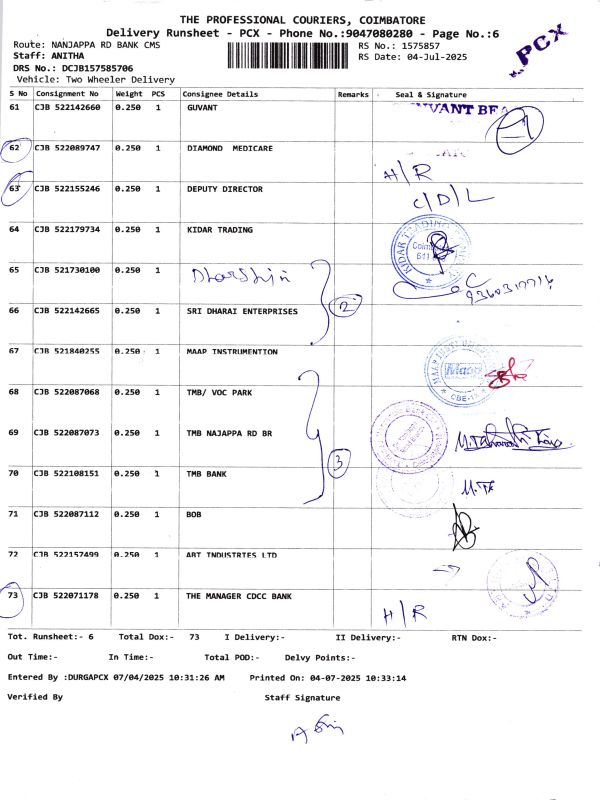 THE PROFESSIONAL COURIERS, COIMBATORE
Delivery Runsheet - PCX - Phone No.:9047080280 - Page No.:6
Route: NANJAPPA RD BANK CMS
RS No.: 1575857
Staff: ANITHA
RS Date: 04-Jul-2025
DRS No.: DCJB157585706
Vehicle: Two Wheeler Delivery
PCX
S No Consignment No Weight PCS Consignee Details Remarks Seal & Signature
61 CJB 522142660 0.250 1 GUVANT
62 CJB 522089747 0.250 1 DIAMOND MEDICARE H/R
63 CJB 522155246 0.250 1 DEPUTY DIRECTOR C/D/L
64 CJB 522179734 0.250 1 KIDAR TRADING
65 CJB 521730100 0.250 1 Dharshini
2
66 CJB 522142665 0.250 1 SRI DHARAI ENTERPRISES
67 CJB 521840255 0.250 1 MAAP INSTRUMENTION
68 CJB 522087068 0.250 1 TMB/ VOC PARK
69 CJB 522087073 0.250 1 TMB NAJAPPA RD BR
3
70 CJB 522108151 0.250 1 TMB BANK
71 CJB 522087112 0.250 1 BOB
72 CJB 522157499 0.250 1 ABT INDUSTRIES LTD
73 CJB 522071178 0.250 1 THE MANAGER CDCC BANK H/R
Tot. Runsheet:- 6 Total Dox:- 73 I Delivery:- II Delivery:- RTN Dox:-
Out Time:- In Time:- Total POD:- Delvy Points:-
Entered By :DURGAPCX 07/04/2025 10:31:26 AM Printed On: 04-07-2025 10:33:14
Verified By Staff Signature